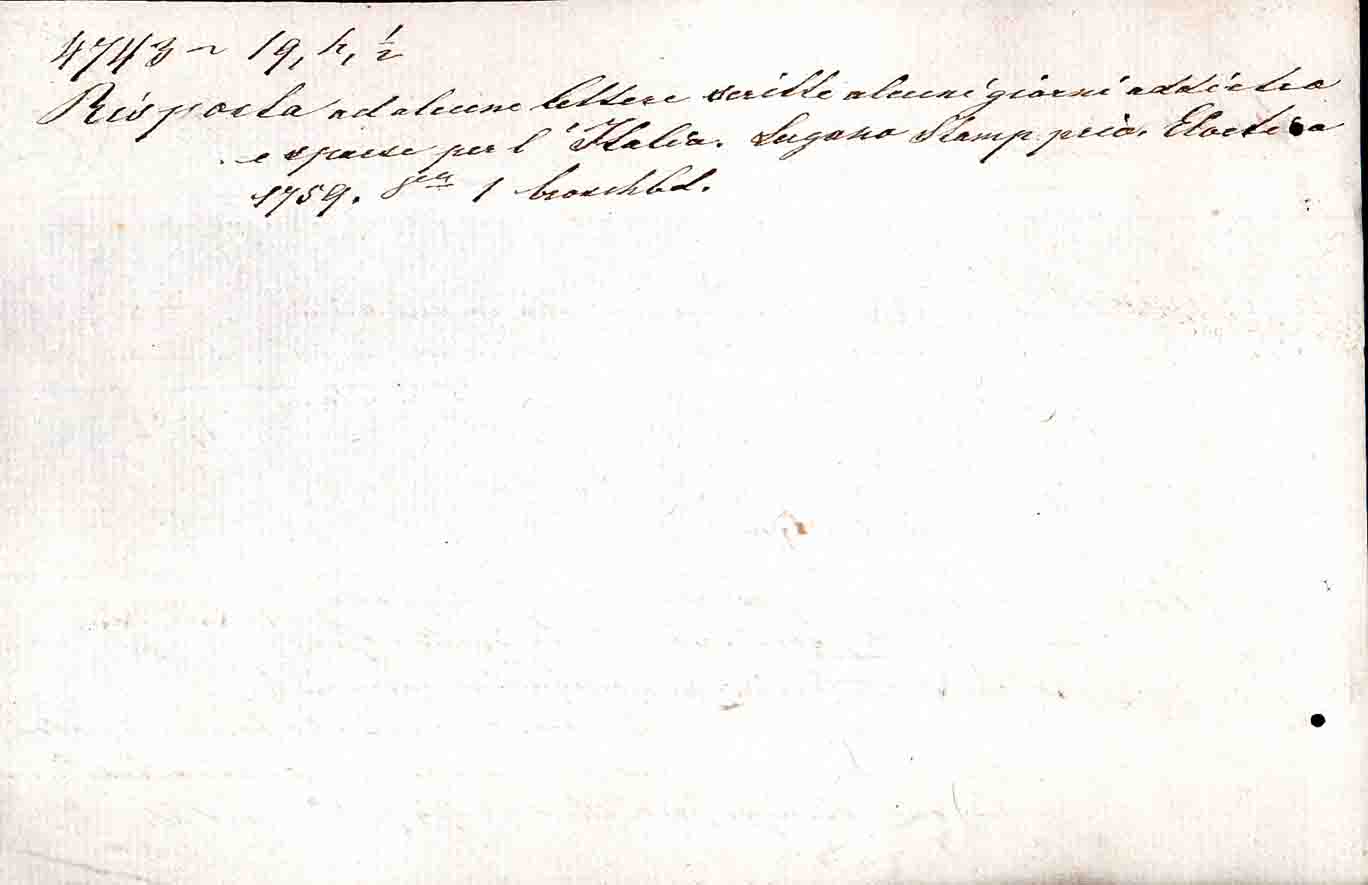 4743 ~ 19, h, ½
Risposta ad alcune lettere scritte alcuni giorni addietro
e sparse per l' Italia. Lugano Stamp pria.
1759. 8vo 1 broschbd.